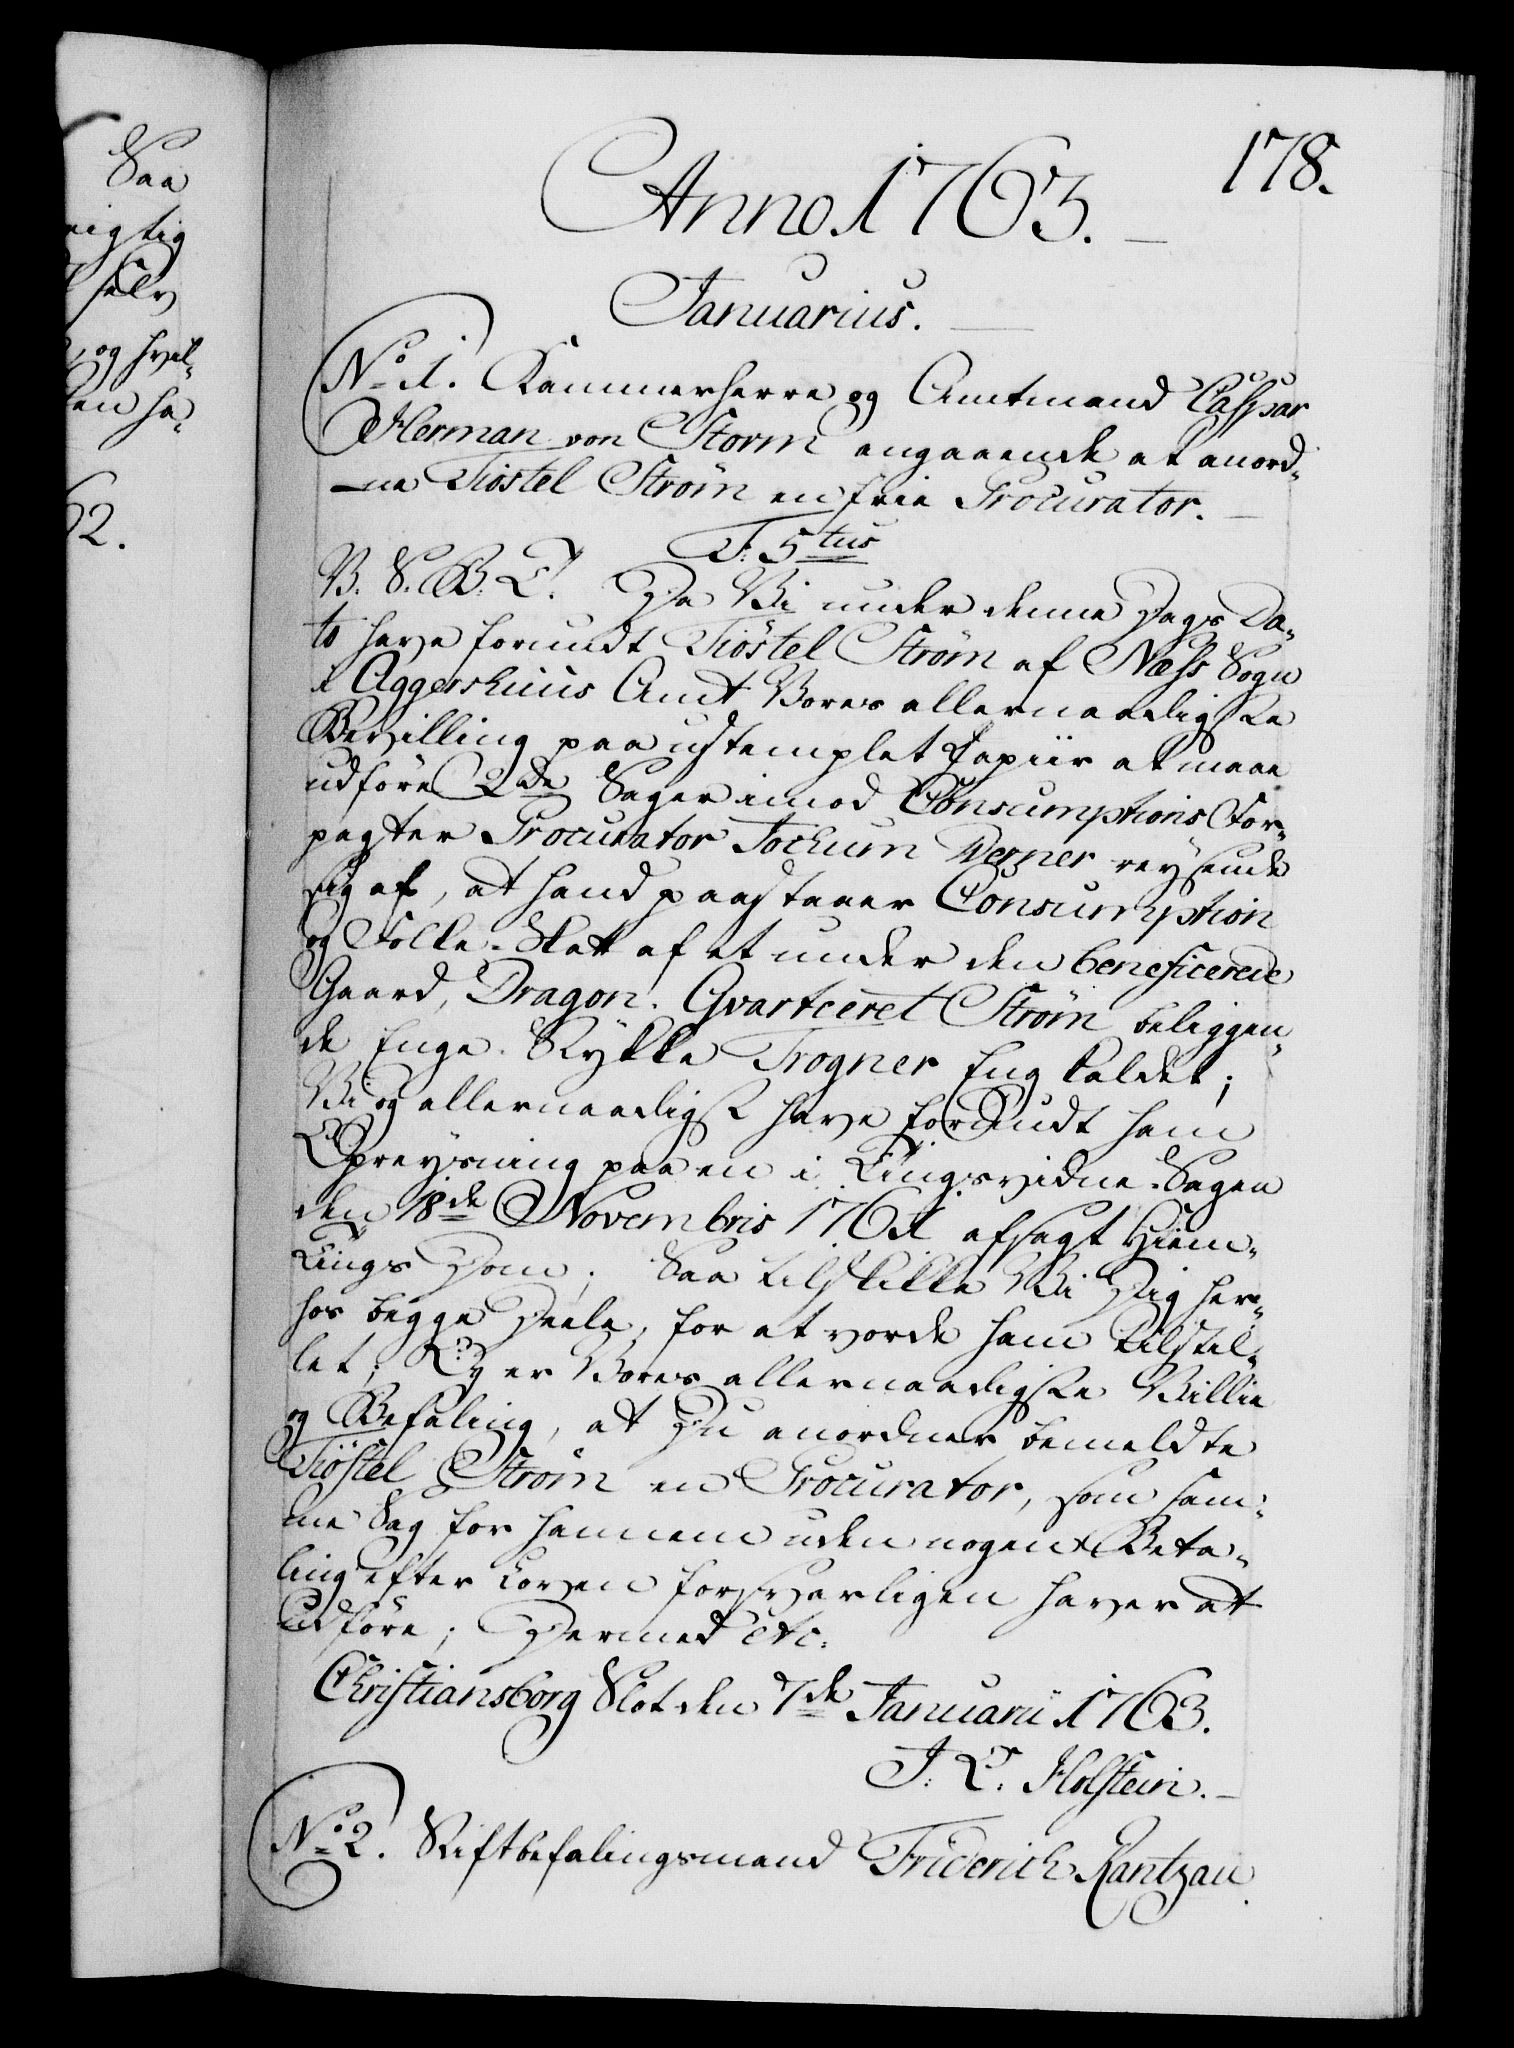 Saa
og hvil-
62.
178.
Anno 1763.
Januarius.
No 1. Kammerherre og Amtmand Caspar
Herman von Storm angaaende at anord-
ne Tiöstel Ström en frie Procurator.
F: 5tus
V. S. B. T. Da Vi under denne Dags Da-
to have forundt Tiöstel Ström af Næss Sogn
i Aggershuus Amt Vores allernaadigste
Bevilling paa ustemplet Papiir at maae
udföre 2de Sager imod Consumptions For-
pagter Procurator Jochum Werner reysende
sig af, at hand paastaaer Consumption
og Folke-Skatt af et under den beneficerede
Gaard, Dragon-Qvarteret Ström beliggen-
de Enge-Stykke Trogner Eng kaldet;
Vi og allernaadigst have forundt ham
Opreysning paa en i Tingsvidne-Sagen
den 18de Novembris 1761 afsagt Hiem-
tings Dom; Saa tilskikke Vi Dig her-
hos begge Deele, for at vorde ham tilstil-
let; Thi er Vores allernaadigste Villie
og Befaling, at Du anordner bemeldte
Tiöstel Ström en Procurator, som sam-
me Sag for hannem uden nogen Beta-
ling efter Loven forsvarligen haver at
udföre; Dermed etc:
Christiansborg Slot den 7de Januarii 1763.
J. L. Holstein.
No 2. Stiftbefalingsmand Friderich Rantzau